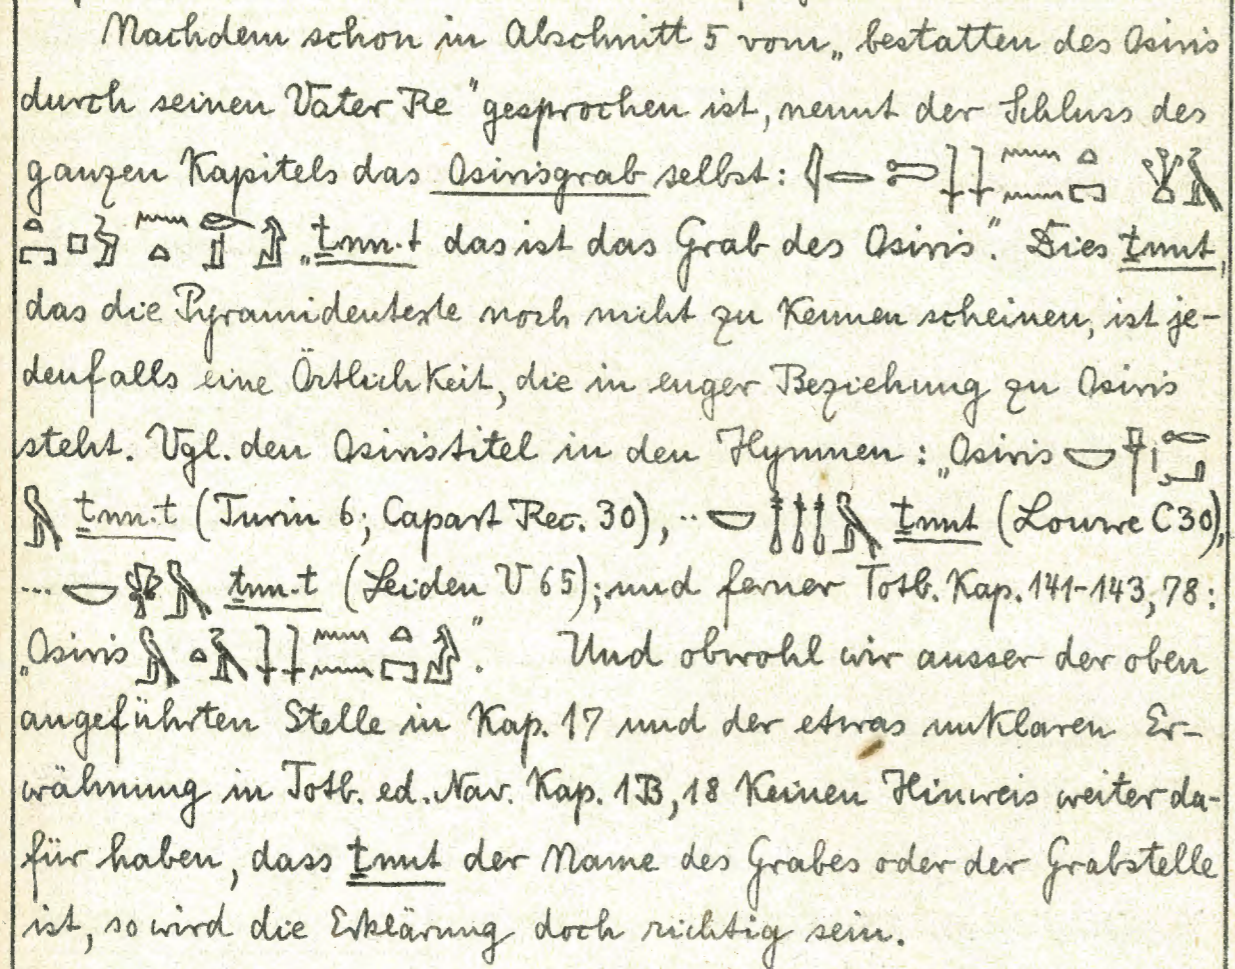 Nachdem schon in Abschnitt 5 vom „bestatten des Osiris
durch seinen Vater Re" gesprochen ist, nennt der Schluss des
ganzen Kapitels das Osirisgrab selbst:
„ṯnn.t das ist das Grab des Osiris". Dies ṯnnt,
das die Pyramidentexte noch nicht zu kennen scheinen, ist je-
denfalls eine Örtlichkeit, die in enger Beziehung zu Osiris
steht. Vgl. den Osiristitel in den Hymnen: „Osiris
ṯnn.t (Turin 6; Capart Rec. 30), .. ṯnnt (Louvre C30),
... ṯnn.t (Leiden V 65); und ferner Totb. Kap. 141-143, 78:
„Osiris ". Und obwohl wir ausser der oben
angeführten Stelle in Kap. 17 und der etwas unklaren Er-
wähnung in Totb. ed. Nav. Kap. 1B, 18 keinen Hinweis weiter da-
für haben, dass ṯnnt der Name des Grabes oder der Grabstelle
ist, so wird die Erklärung doch richtig sein.